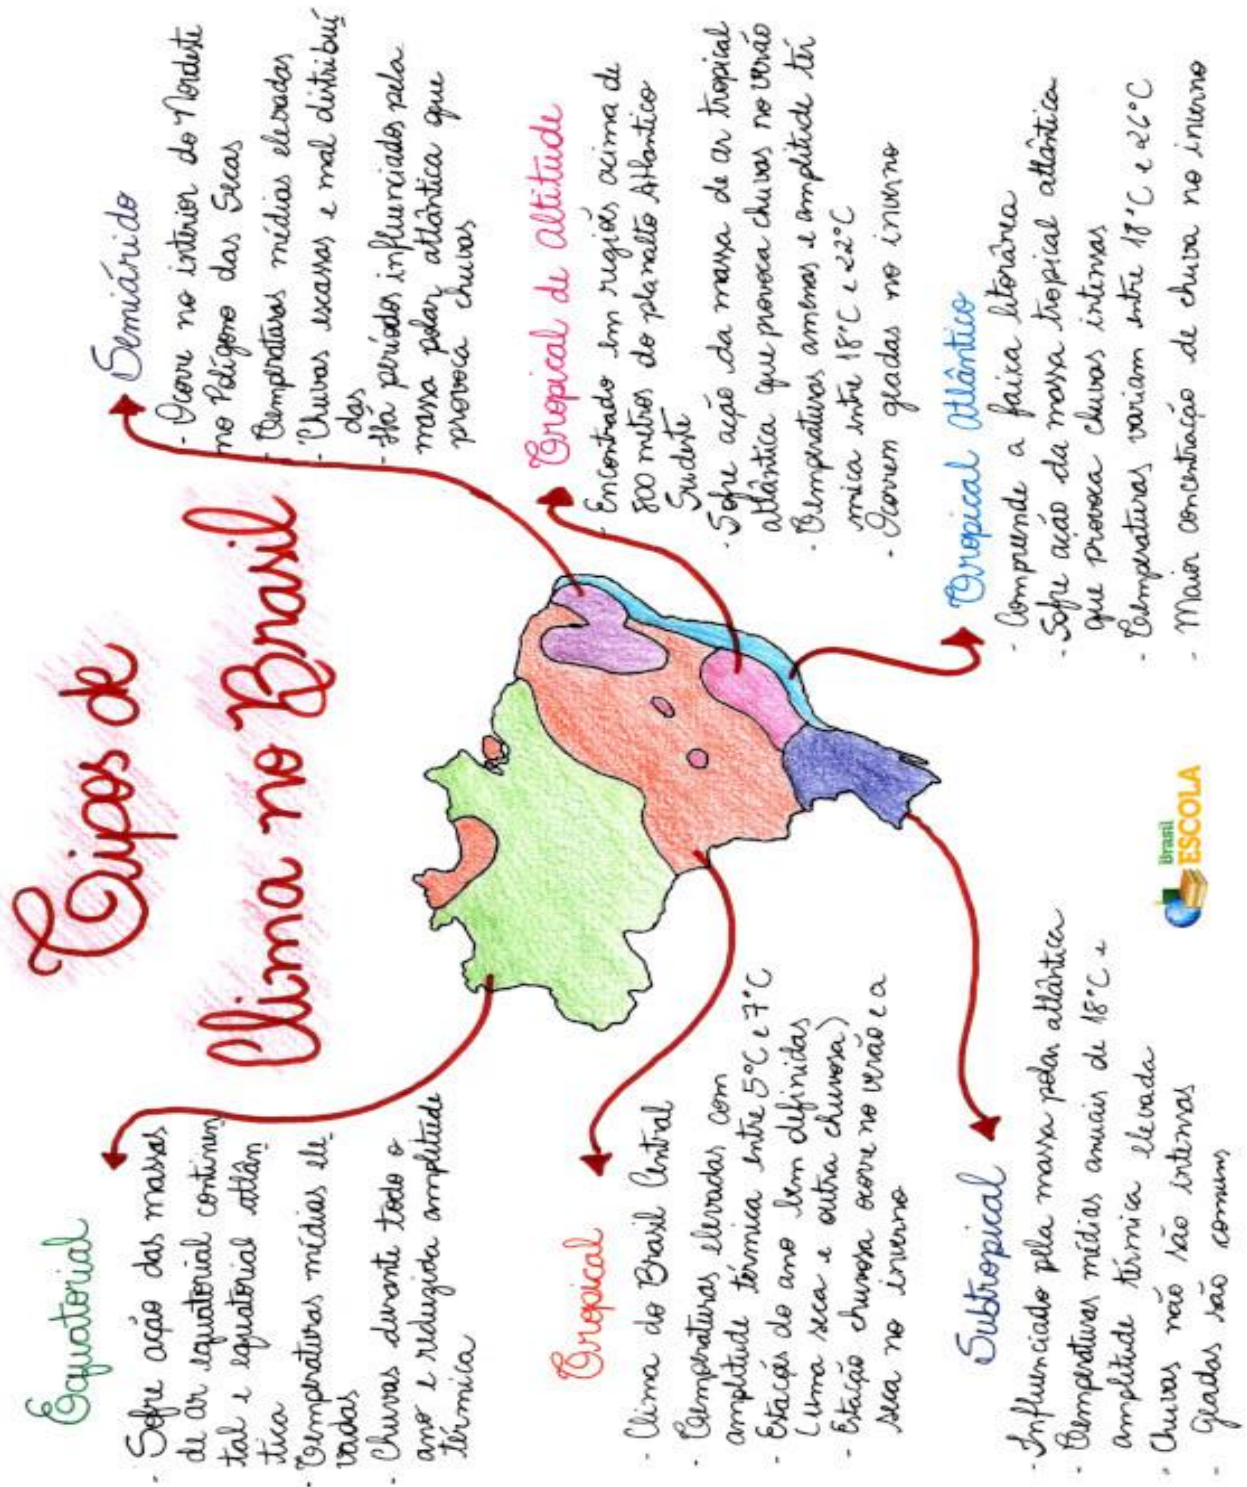 Tipos de
Clima no Brasil
Equatorial
- Sofre ação das massas
de ar equatorial continen
tal e equatorial atlân
tica
- Temperaturas médias ele
vadas
- Chuvas durante todo o
ano e reduzida amplitude
térmica
Tropical
- Clima do Brasil Central
- Temperaturas elevadas com
amplitude térmica entre 5°C e 7°C
- Estações do ano bem definidas
(uma seca e outra chuvosa)
- Estação chuvosa ocorre no verão e a
seca no inverno
Subtropical
- Influenciado pela massa polar atlântica
- Temperaturas médias anuais de 18°C e
amplitude térmica elevada
- Chuvas não são intensas
- Geadas são comuns
Semiárido
- Ocorre no interior do Nordeste
no Polígono das Secas
- Temperaturas médias elevadas
- Chuvas escassas e mal distribuí
das
- Há períodos influenciados pela
massa polar atlântica que
provoca chuvas
Tropical de Altitude
- Encontrado em regiões acima de
800 metros do planalto Atlântico
Sudeste
- Sofre ação da massa de ar tropical
atlântica que provoca chuvas no verão
- Temperaturas amenas e amplitude tér
mica entre 18°C e 22°C
- Ocorrem geadas no inverno
Tropical Atlântico
- Compreende a faixa litorânea
- Sofre ação da massa tropical atlântica
que provoca chuvas intensas
- Temperaturas variam entre 18°C e 26°C
- Maior concentração de chuva no inverno
Brasil
ESCOLA